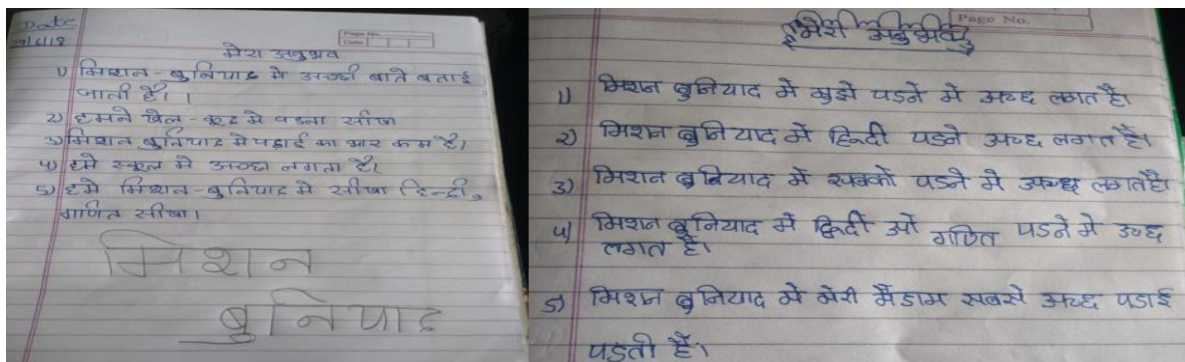 Date
29/6/18
Page No.
Date
मेरा अनुभव
1) मिशन-बुनियाद मे अच्छी बाते बताई
जाती है। ।
2) हमने खेल-कूद मे पडना सीखा
3) मिशन बुनियाद मे पढाई का भार कम है।
4) हमे स्कूल मे अच्छा लगता है।
5) हमे मिशन-बुनियाद मे सीखा हिन्दी,
गणित सीखा।
मिशन
बुनियाद
Page No.
मेरी अनुभव
1) मिशन बुनियाद में मुझे पडने में अच्छ लगत है।
2) मिशन बुनियाद में हिन्दी पडने अच्छ लगत है।
3) मिशन बुनियाद में सबको पडने मे अच्छ लगत है।
4) मिशन बुनियाद में हिन्दी ओ गणित पडने मे अच्छ
लगत है।
5) मिशन बुनियाद मे मेरी मैडाम सबसे अच्छ पडाई
पडती है।